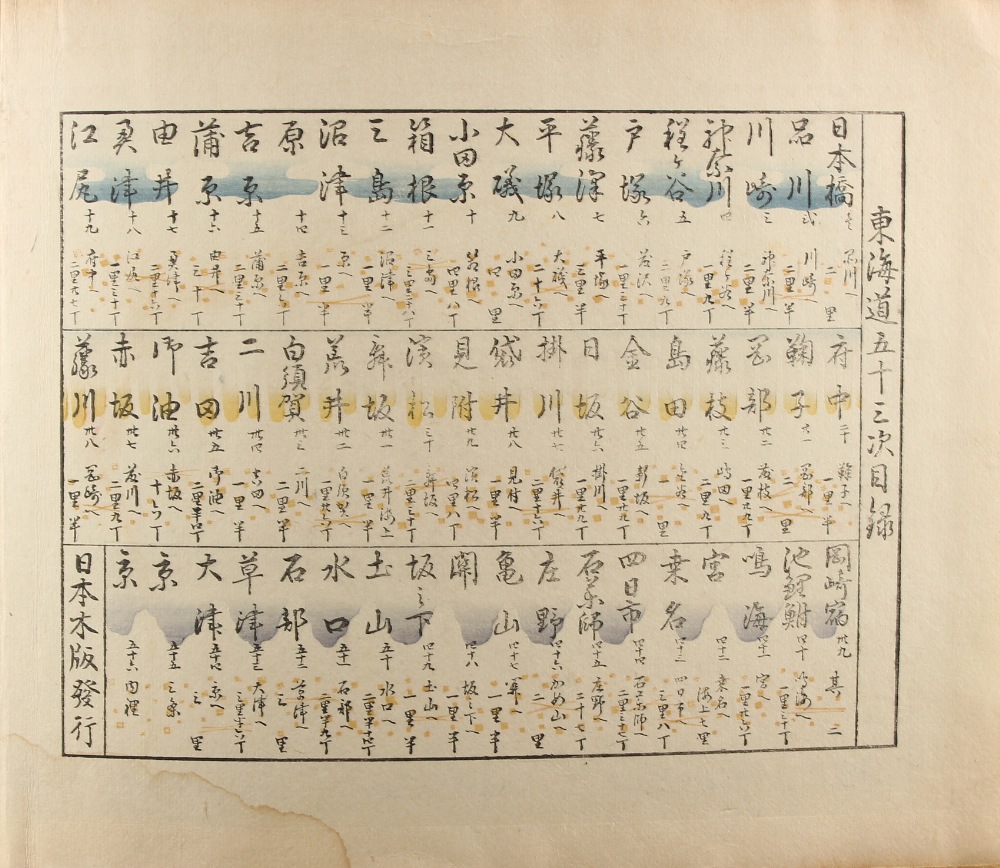 東海道五十三次目録
日本橋
品川へ
二里
品川 弐
川崎へ
二里半
川崎 三
神奈川へ
二里半
神奈川 四
程ヶ谷へ
一里九丁
程ヶ谷 五
戸塚へ
二里九丁
戸塚 六
藤沢へ
一里三十丁
藤澤 七
平塚へ
三里半
平塚 八
大磯へ
二十六丁
大磯 九
小田原へ
四里
小田原 十
箱根へ
四里八丁
箱根 十一
三島へ
三里二十八丁
三島 十二
沼津へ
一里半
沼津 十三
原へ
一里半
原 十四
吉原へ
二里六丁
吉原 十五
蒲原へ
二里三十丁
蒲原 十六
由井へ
三十丁
由井 十七
奥津へ
二里十六丁
奥津 十八
江尻へ
一里三十丁
江尻 十九
府中へ
二里廿七丁
府中 二十
鞠子へ
一里半
鞠子 廿一
岡部へ
二里
岡部 廿二
藤枝へ
一里廿九丁
藤枝 廿三
嶋田へ
二里九丁
島田 廿四
金谷へ
一里
金谷 廿五
新坂へ
一里廿九丁
日坂 廿六
掛川へ
一里廿九丁
掛川 廿七
袋井へ
二里十六丁
袋井 廿八
見付へ
一里半
見附 廿九
濱松へ
四里八丁
濱松 三十
舞坂へ
二里三十丁
舞坂 卅一
荒井海上
一里半
荒井 卅二
白須賀へ
一里廿六丁
白須賀 卅三
二川へ
二里半
二川 卅四
吉田へ
一里半
吉田 卅五
御油へ
二里半四丁
御油 卅六
赤坂へ
十六丁
赤坂 卅七
藤川へ
二里九丁
藤川 卅八
岡崎へ
一里半
岡崎宿 卅九
其二
池鯉鮒 四十
鳴海へ
二里三十丁
鳴海 四十一
宮へ
一里廿六丁
宮 四十二
桑名へ
海上七里
桑名 四十三
四日市へ
三里八丁
四日市 四十四
石薬師へ
二里三十七丁
石薬師 四十五
庄野へ
二十七丁
庄野 四十六
かめ山へ
二里
亀山 四十七
関へ
一里半
関 四十八
坂之下へ
一里半
坂之下 四十九
土山へ
一里半
土山 五十
水口へ
二里半十七丁
水口 五十一
石部へ
二里半九丁
石部
草津へ
三里
草津 五十三
大津へ
三里半六丁
大津 五十四
京へ
三里
京 五十五
三条
京 五十六
内裡
日本木版發行